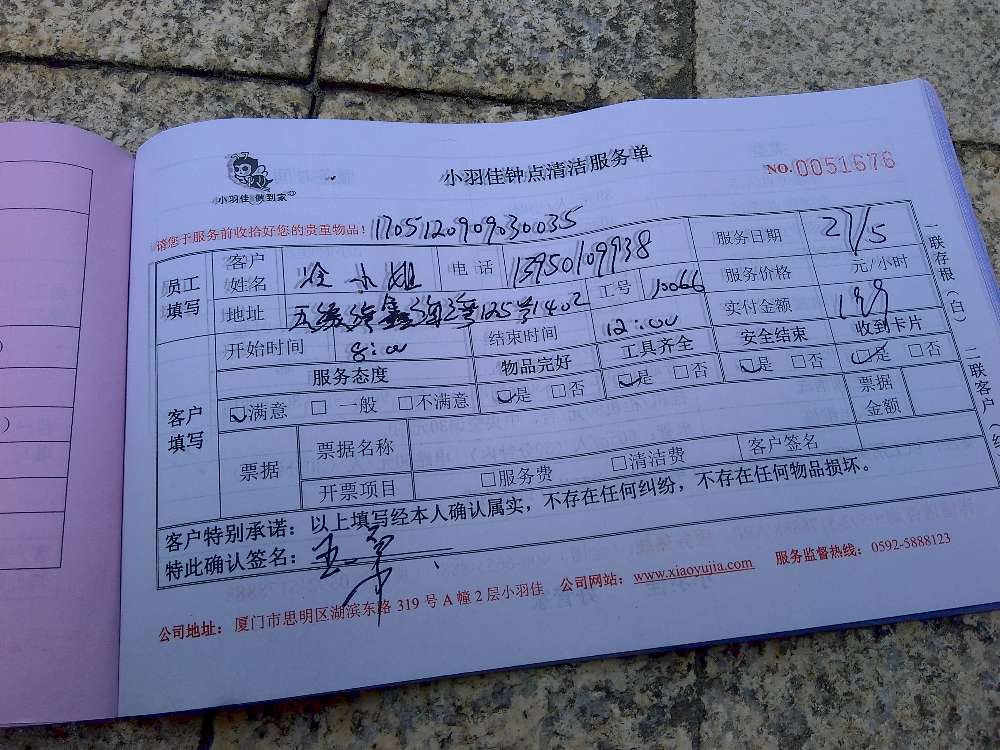 小羽佳 做到家
小羽佳钟点清洁服务单
NO.0051676
请您于服务前收拾好您的贵重物品！
1705120909030035
员工填写 客户姓名 小姐 电话 13950109938 服务日期 27/5
地址 五缘湾鑫海湾125号1402 工号 10066 服务价格 元/小时
实付金额 199
客户填写 开始时间 8:00 结束时间 12:00
服务态度 物品完好 工具齐全 安全结束 收到卡片
☑满意 □ 一般 □不满意 ☑是 □否 ☑是 □否 ☑是 □否 ☑是 □否
票据 票据名称 票据金额
开票项目 □服务费 □清洁费 客户签名
客户特别承诺：以上填写经本人确认属实，不存在任何纠纷，不存在任何物品损坏。
特此确认签名：
公司地址：厦门市思明区湖滨东路 319 号 A 幢 2 层小羽佳 公司网站：www.xiaoyujia.com 服务监督热线：0592-5888123
一联存根（白）
二联客户